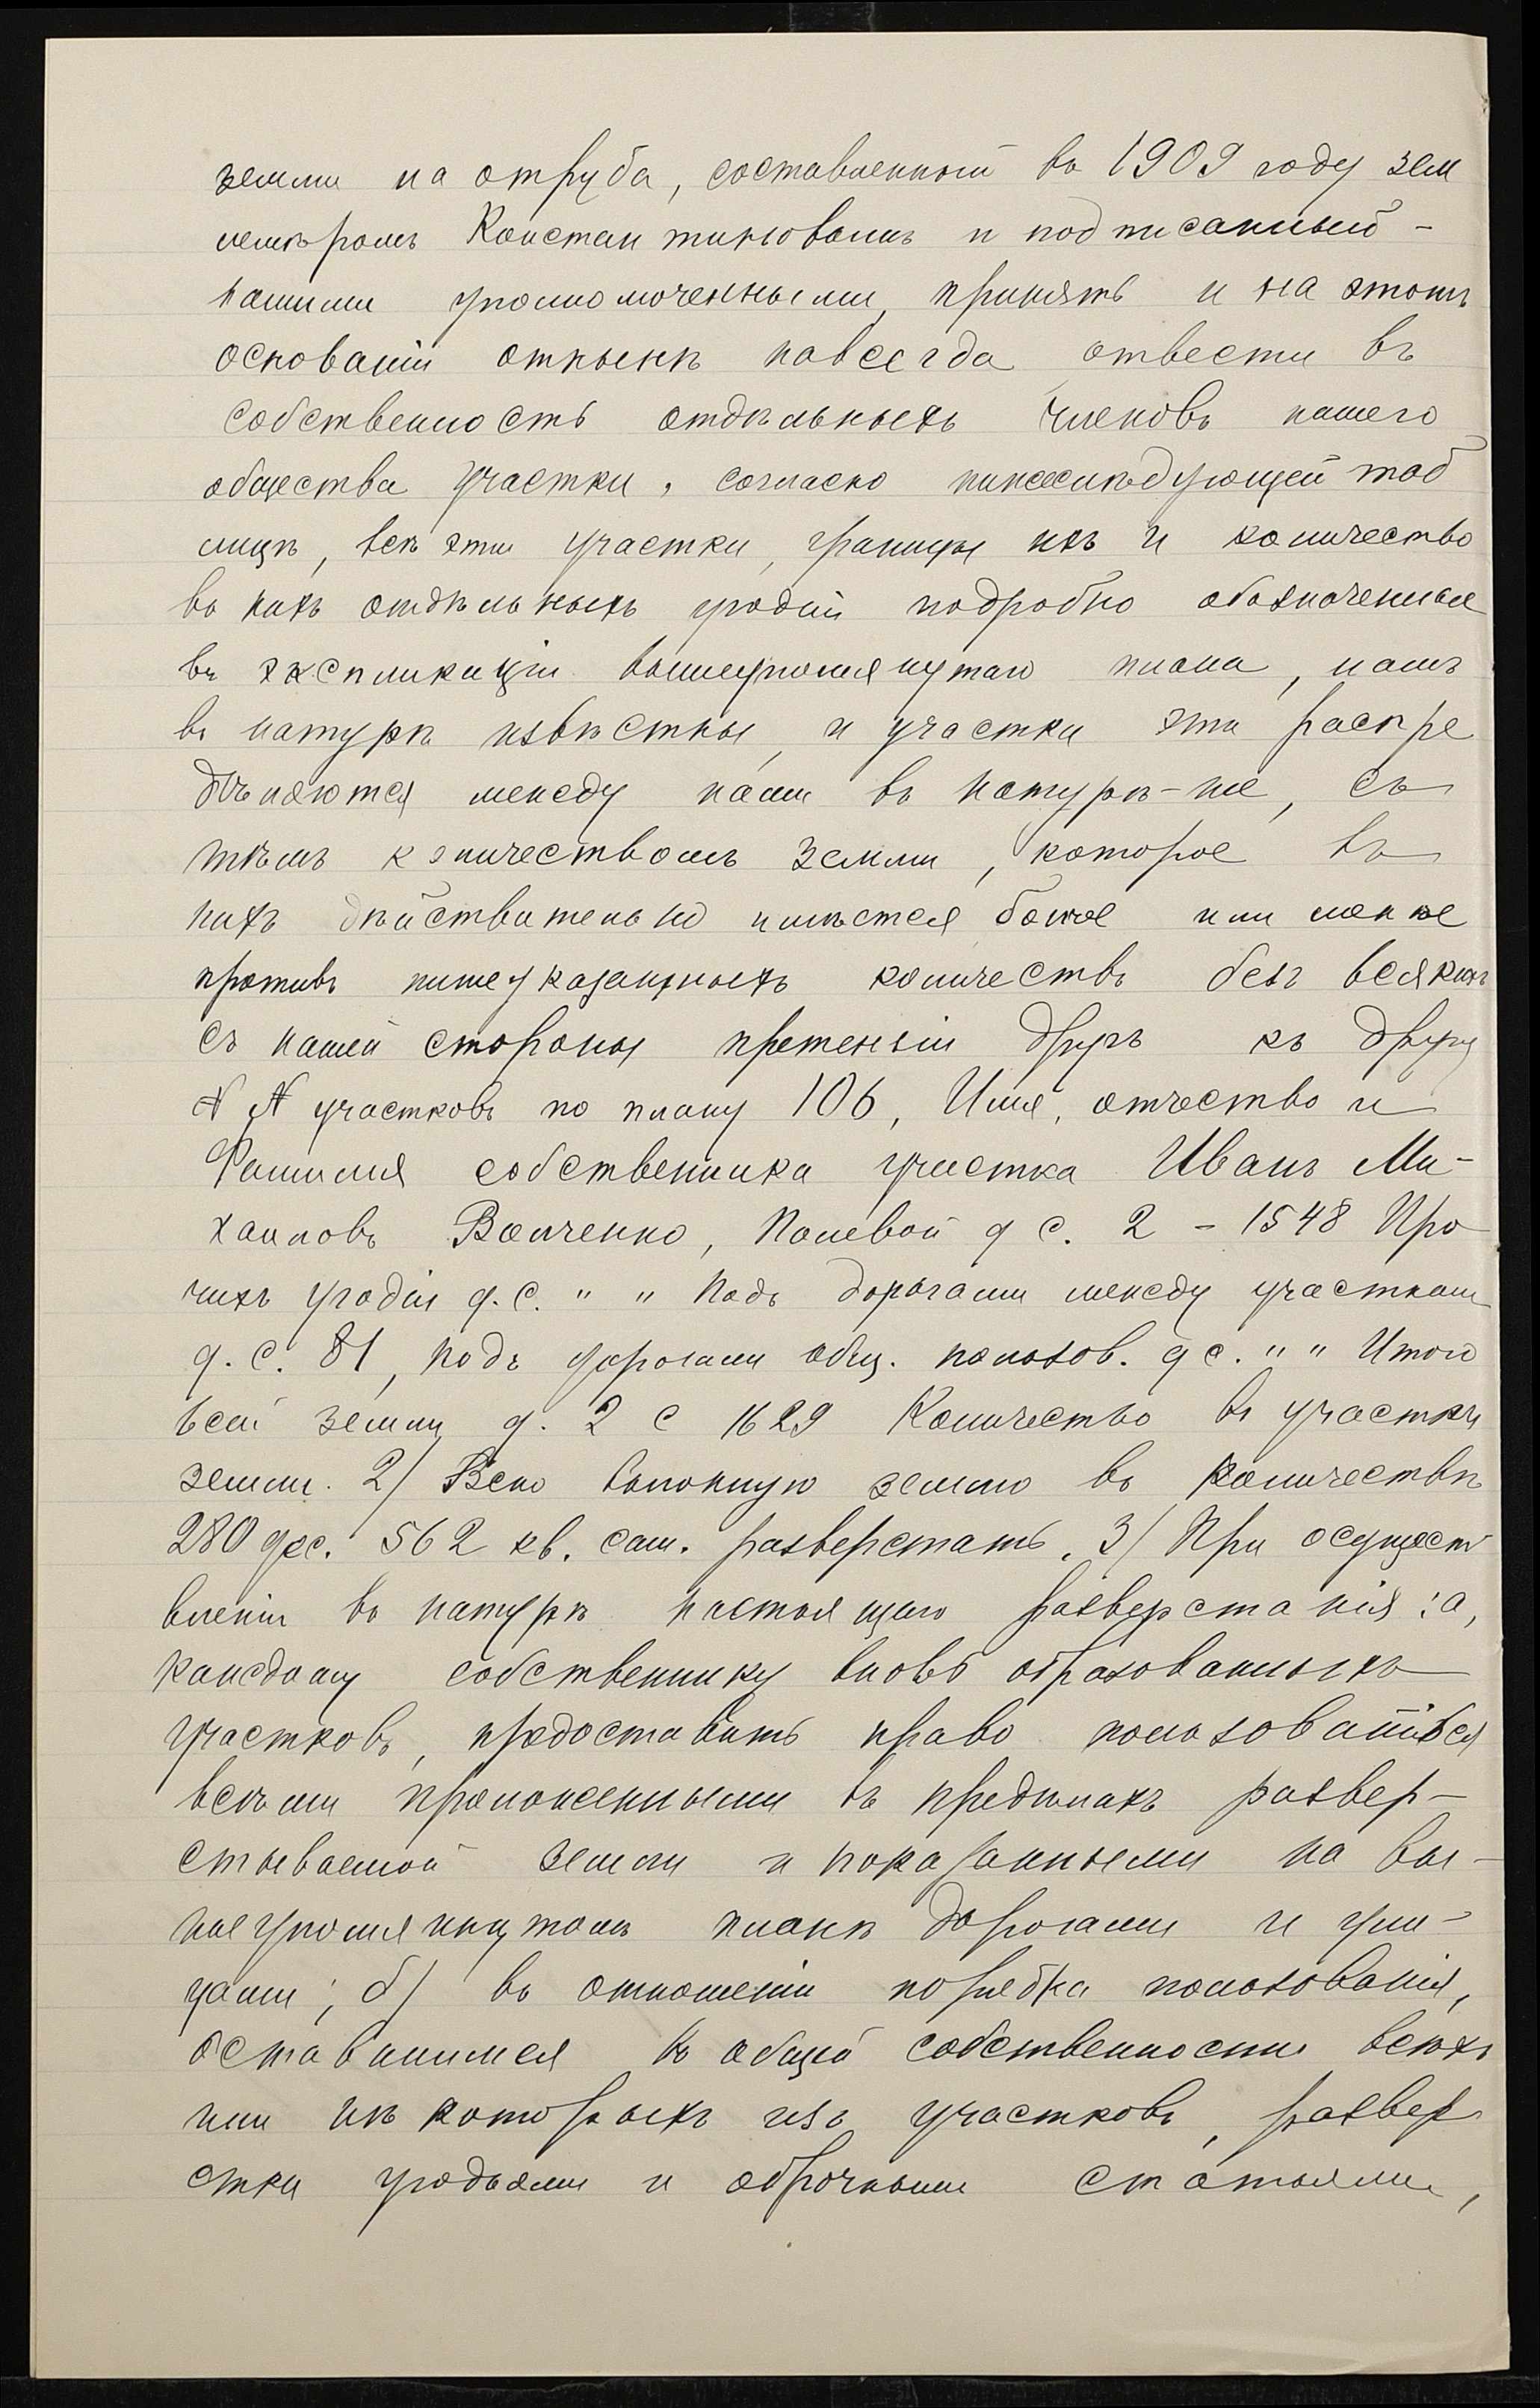 земли на отруба, составленный въ 1909 году зем
лемѣромъ Константиновымъ и подписанный -
нашими уполномоченными, принять и на этомъ
основаніи отнынѣ навсегда отвести въ
собственность отдѣльныхъ членовъ нашего
общества участки, согласно нижеслѣдующей таб
лицѣ, всѣ эти участки, границы ихъ и количество
въ нихъ отдѣльныхъ угодій подробно обозначенные
въ экспликаціи вышеупомянутаго плана, намъ
въ натурѣ извѣстны, и участки эти распре
дѣляются между нами въ натурѣ-же, съ
тѣмъ количествомъ земли, которое въ
нихъ дѣйствительно имѣется болѣе или менѣе
противъ нижеуказанныхъ количествъ безъ всякихъ
съ нашей стороны претензій другъ къ другу
№ № участковъ по плану 106, Имя, отчество и
Фамилія собственника участка Иванъ Ми-
хаиловъ Волченко, Полевой д с. 2 - 1548 Про
чихъ угодій д. с. " " Подъ дорогами между участками
д. с. 81, подъ дорогами общ. пользов. д с. " " Итого
всей земли д. 2 с 1629 Количество въ участкѣ
земли. 2) Всю земмлю въ количествѣ
280 дес. 562 кв. саж. разверстать. 3) При осущест
вленіи въ натурѣ настоящаго разверстанія: а,
каждому собственнику вновь образованныхъ
участковъ, предоставить право пользоваться
всѣми проложенными въ предѣлахъ развер-
стываемой земли и показанными на вы-
шеупомянутомъ планѣ дорогами и ули-
цами; б) въ отношеніи порядка пользованія,
оставшимися въ общей собственности всѣхъ
или нѣкоторыхъ изъ участковъ, развер
стки угодьями и оброчными статьями,